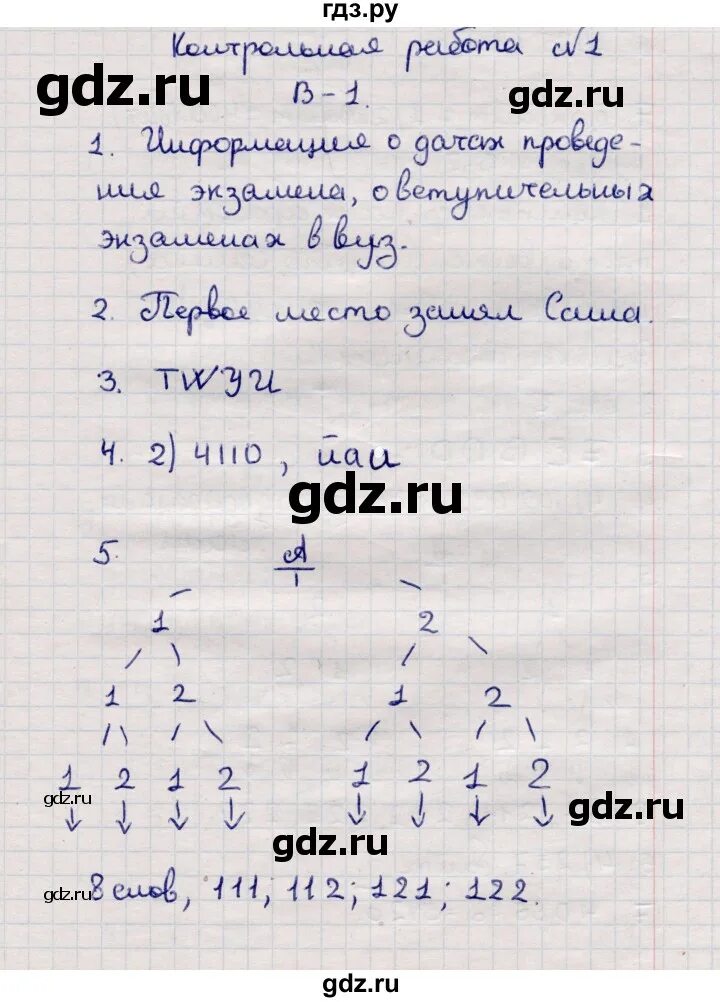 гдз.ру
Контрольная работа №1
gdz.ru
В-1.
gdz.ru
1. Информация о датах проведе-
ния экзамена, о вступительных
экзаменах в вуз.
2. Первое место занял Саша.
3. TWYU
4. 2) 4110, йаи
gdz.ru
5. А
1 2
1 2 1 2
1 2 1 2 1 2 1 2
gdz.ru
gdz.ru
gdz.ru
gdz.ru
8 слов, 111; 112; 121; 122.
gdz.ru